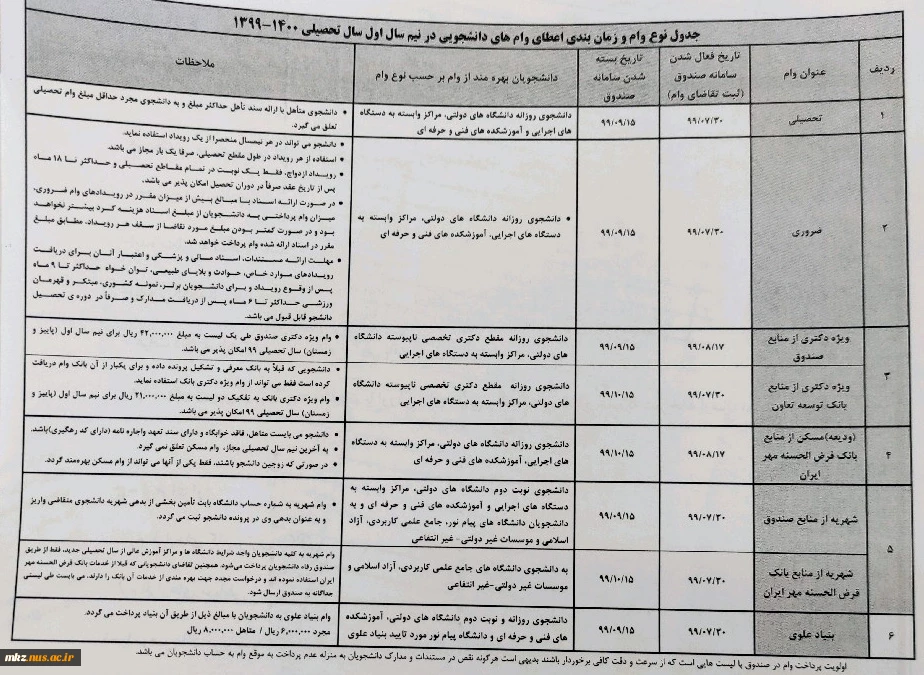 جدول نوع وام و زمان بندی اعطای وام های دانشجویی در نیم سال اول سال تحصیلی ۱۴۰۰-۱۳۹۹
ردیف
عنوان وام
تاریخ فعال شدن
سامانه صندوق
(ثبت تقاضای وام)
تاریخ بسته
شدن سامانه
صندوق
دانشجویان بهره مند از وام بر حسب نوع وام
ملاحظات
۱
تحصیلی
۹۹/۰۷/۳۰
۹۹/۰۹/۱۵
دانشجوی روزانه دانشگاه های دولتی، مراکز وابسته به دستگاه
های اجرایی و آموزشکده های فنی و حرفه ای
• دانشجوی متأهل با ارائه سند تأهل حداکثر مبلغ و به دانشجوی مجرد حداقل مبلغ وام تحصیلی
تعلق می گیرد.
۲
ضروری
۹۹/۰۷/۳۰
۹۹/۰۹/۱۵
• دانشجوی روزانه دانشگاه های دولتی، مراکز وابسته به
دستگاه های اجرایی، آموزشکده های فنی و حرفه ای
• دانشجو می تواند در هر نیمسال منحصرا از یک رویداد استفاده نماید.
• استفاده از هر رویداد در طول مقطع تحصیلی، صرفا یک بار مجاز می باشد.
• رویداد ازدواج، فقط یک نوبت در تمام مقاطع تحصیلی و حداکثر تا ۱۸ ماه
پس از تاریخ عقد صرفاً در دوران تحصیل امکان پذیر می باشد.
• در صورت ارائه اسناد با مبالغ بیش از میزان مقرر در رویدادهای وام ضروری،
میزان وام پرداختی به دانشجویان از مبلغ اسناد هزینه کرد بیشتر نخواهد
بود و در صورت کمتر بودن مبلغ مورد تقاضا از سقف هر رویداد، مطابق مبلغ
مقرر در اسناد ارائه شده وام پرداخت خواهد شد.
• مهلت ارائه مستندات، اسناد مالی و پزشکی و اعتبار آنان برای دریافت
رویدادهای موارد خاص، حوادث و بلایای طبیعی، توان خواه حداکثر تا ۹ ماه
پس از وقوع رویداد و برای دانشجویان برتر، نمونه کشوری، مبتکر و قهرمان
ورزشی حداکثر تا ۶ ماه پس از دریافت مدارک و صرفاً در دوره ی تحصیل
دانشجو قابل قبول می باشد.
۳
ویژه دکتری از منابع
صندوق
۹۹/۰۸/۱۷
۹۹/۰۹/۱۵
دانشجوی روزانه مقطع دکتری تخصصی ناپیوسته دانشگاه
های دولتی، مراکز وابسته به دستگاه های اجرایی
• وام ویژه دکتری صندوق طی یک لیست به مبلغ ۴۲,۰۰۰,۰۰۰ ریال برای نیم سال اول (پاییز و
زمستان) سال تحصیلی ۹۹ امکان پذیر می باشد.
ویژه دکتری از منابع
بانک توسعه تعاون
۹۹/۰۷/۳۰
۹۹/۱۰/۱۵
دانشجوی روزانه مقطع دکتری تخصصی ناپیوسته دانشگاه
های دولتی، مراکز وابسته به دستگاه های اجرایی
• دانشجویی که قبلاً به بانک معرفی و تشکیل پرونده داده و برای یکبار از آن بانک وام دریافت
کرده است فقط می تواند از وام ویژه دکتری بانک استفاده نماید.
• وام ویژه دکتری بانک به تفکیک دو لیست به مبلغ ۲۱,۰۰۰,۰۰۰ ریال برای نیم سال اول (پاییز و
زمستان) سال تحصیلی ۹۹ امکان پذیر می باشد.
۴
(ودیعه)مسکن از منابع
بانک قرض الحسنه مهر
ایران
۹۹/۰۸/۱۷
۹۹/۱۰/۱۵
دانشجوی روزانه دانشگاه های دولتی، مراکز وابسته به دستگاه
های اجرایی، آموزشکده های فنی و حرفه ای
• دانشجو می بایست متاهل، فاقد خوابگاه و دارای سند تعهد واجاره نامه (دارای کد رهگیری)باشد.
• به آخرین نیم سال تحصیلی مجاز، وام مسکن تعلق نمی گیرد.
• در صورتی که زوجین دانشجو باشند، فقط یکی از آنها می تواند از وام مسکن بهره‌مند گردد.
۵
شهریه از منابع صندوق
۹۹/۰۷/۳۰
۹۹/۰۹/۱۵
دانشجوی نوبت دوم دانشگاه های دولتی، مراکز وابسته به
دستگاه های اجرایی و آموزشکده های فنی و حرفه ای و به
دانشجویان دانشگاه های پیام نور، جامع علمی کاربردی، آزاد
اسلامی و موسسات غیر دولتی- غیر انتفاعی
• وام شهریه به شماره حساب دانشگاه بابت تأمین بخشی از بدهی شهریه دانشجوی متقاضی واریز
و به عنوان بدهی وی در پرونده دانشجو ثبت می گردد.
شهریه از منابع بانک
قرض الحسنه مهر ایران
۹۹/۰۷/۳۰
۹۹/۱۰/۱۵
به دانشجوی دانشگاه های جامع علمی کاربردی، آزاد اسلامی و
موسسات غیر دولتی-غیر انتفاعی
وام شهریه به کلیه دانشجویان واجد شرایط دانشگاه ها و مراکز آموزش عالی از سال تحصیلی جدید، فقط از طریق
صندوق رفاه دانشجویان پرداخت می‌شود. همچنین تقاضای دانشجویانی که قبلا از خدمات بانک قرض الحسنه مهر
ایران استفاده نموده اند و درخواست مجدد جهت بهره مندی از خدمات آن بانک را دارند، می بایست طی لیستی
جداگانه به صندوق ارسال شود.
۶
بنیاد علوی
۹۹/۰۷/۳۰
۹۹/۰۹/۱۵
دانشجوی روزانه و نوبت دوم دانشگاه های دولتی، آموزشکده
های فنی و حرفه ای و دانشگاه پیام نور مورد تایید بنیاد علوی
وام بنیاد علوی به دانشجویان با مبالغ ذیل از طریق آن بنیاد پرداخت می گردد.
مجرد ۶,۰۰۰,۰۰۰ ریال / متاهل ۸,۰۰۰,۰۰۰ ریال
اولویت پرداخت وام در صندوق با لیست هایی است که از سرعت و دقت کافی برخوردار باشند بدیهی است هرگونه نقص در مستندات و مدارک دانشجویان به منزله عدم پرداخت به موقع وام به حساب دانشجویان می باشد.
mkz.nus.ac.ir